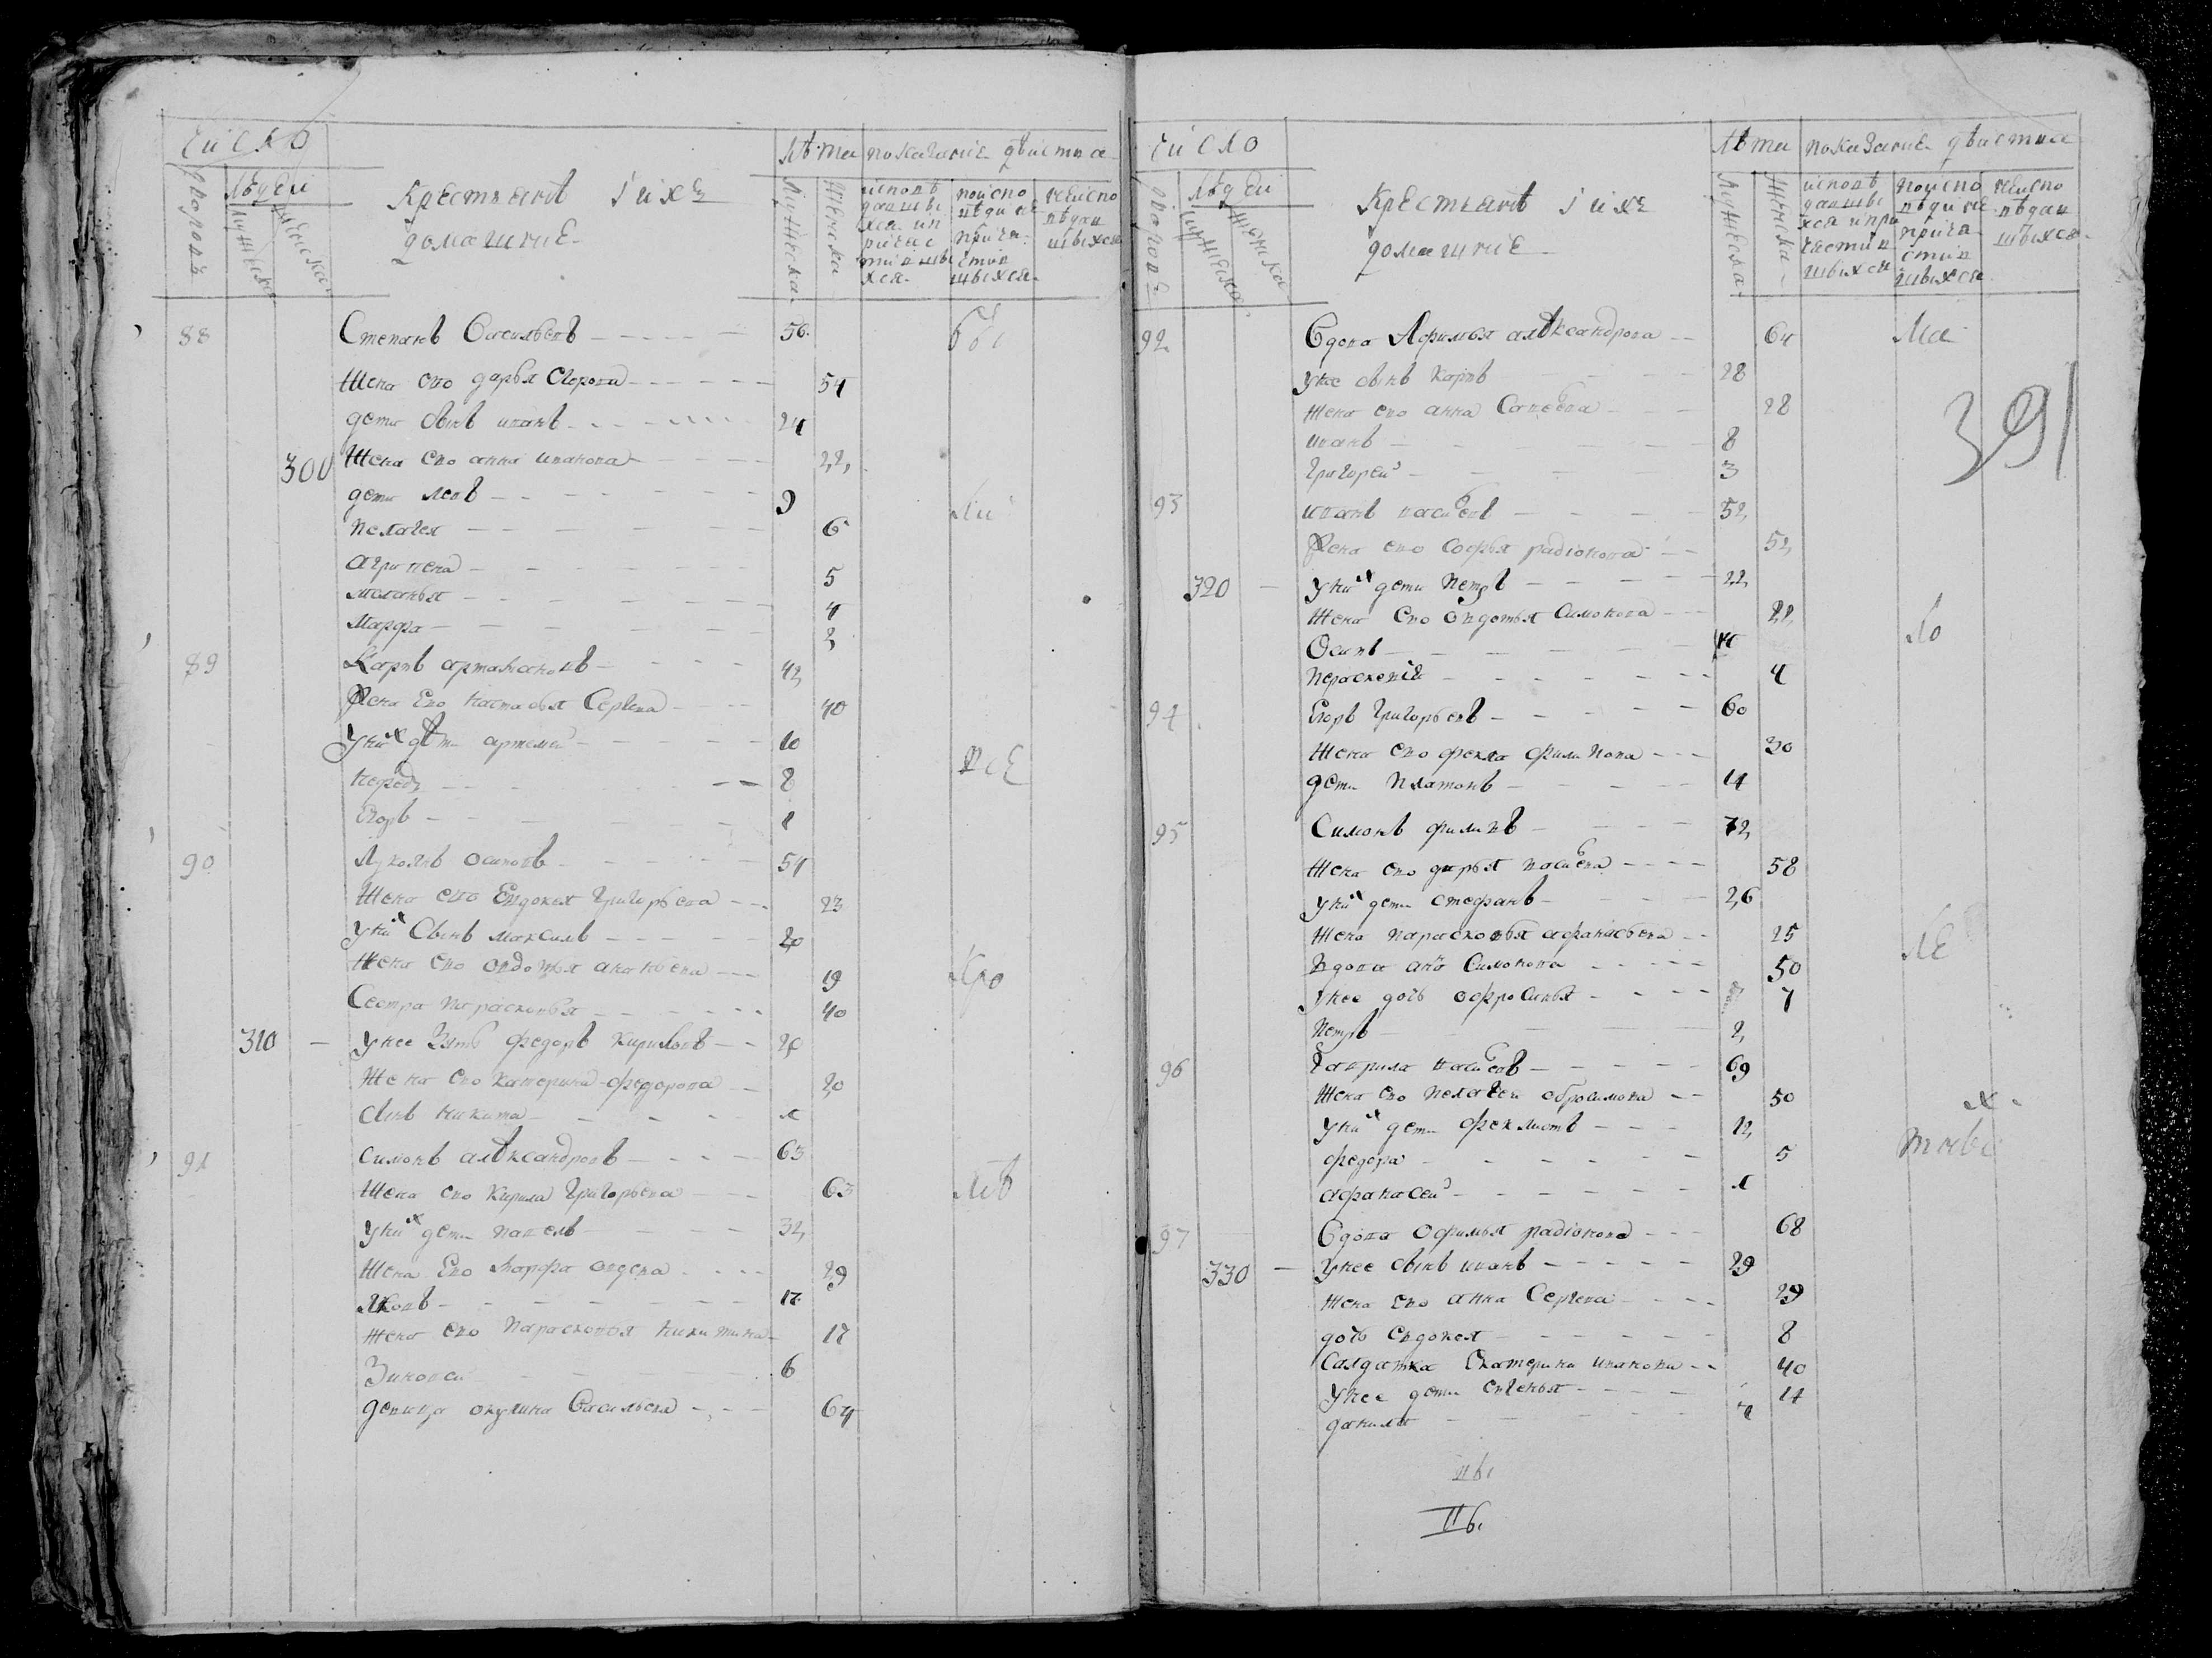 Число
Людей
Дворовъ
Мужеска
Женска
Крестьянъ i ихъ
домашние
Лѣта
Мужеска
Женска
показание действа
исповѣ
давшы
хся и п
ричас
тившы
хся
поиспо
вѣди не
прича
стив
шыхся
неиспо
вѣдав
шыхся
88 Степанъ Васильевъ 56 бы
Жена ево дарья Егорова 54
дети сынъ иванъ 24
300 Жена ево анна иванова 22
дети левъ 9 ли
пелагея 6
агрипена 5
маланья 4
Марфа 2
89 Карпъ артамановъ 42
Жена Ево настасья Сергева 40
У них дѣти артемей 10
нефедъ 8 все
Егоръ 1
90 Лукоянъ осиповъ 54
Жена ево Евдокея Григорьева 23
У них Сынъ максимъ 20
Жена ево овдотья ананьева 19 кро
Сестра парасковья 40
310 У нее Зять федоръ Кириловъ 20
Жена ево катерина федорова 20
Сынъ никита 1
91 Симонъ алѣксандровъ 63
Жена ево Кирила Григорьева 63 лтв
У них дети павелъ 32
Жена Ево Марфа авдева 29
Яковъ 17
Жена ево парасковья никитина 17
Зиновеи 6
девица окулина Васильева 64
Число
Людей
Дворовъ
Мужеска
Женска
Крестьянъ i ихъ
домашние
Лѣта
Мужеска
Женска
показание действа
исповѣ
давшы
хся и при
частив
шыхся
поиспо
вѣди не
прича
стив
шыхся
неиспо
вѣдав
шыхся
391
92 Вдова Афимья алѣксандрова 64 Ма
У нее сынъ карпъ 28
Жена ево анна Савѣева 28
иванъ 8
Григорей 3
93 иванъ васильевъ 52
Жена ево Софья радионова 52
320 У них дети петръ 22
Жена ево овдотья Симонова 22 ло
Осипъ 10
Парасковiя 4
94 Егоръ Григорьевъ 60
Жена ево фекла филипова 30
дети Платонъ 14
95 Симонъ филипъ 72
Жена ево дарья васильева 58
У них дети стефанъ 26
Жена парасковья афанасьева 25 ле
Вдова анна Симонова 50
У нее дочь офросинья 7
Петръ 2
96 Гаврила васильевъ 69
Жена ево пелагеи обросимова 50 х
У них дети феклистъ 12 тавы
федора 5
афанасей 1
97 Вдова офимья радионова 68
330 У нее сынъ иванъ 29
Жена ево анна Сергева 29
дочь Евдокея 8
Салдатка Екатерина иванова 40
У нее дети евгенья 14
данила 7
вы
IIвы